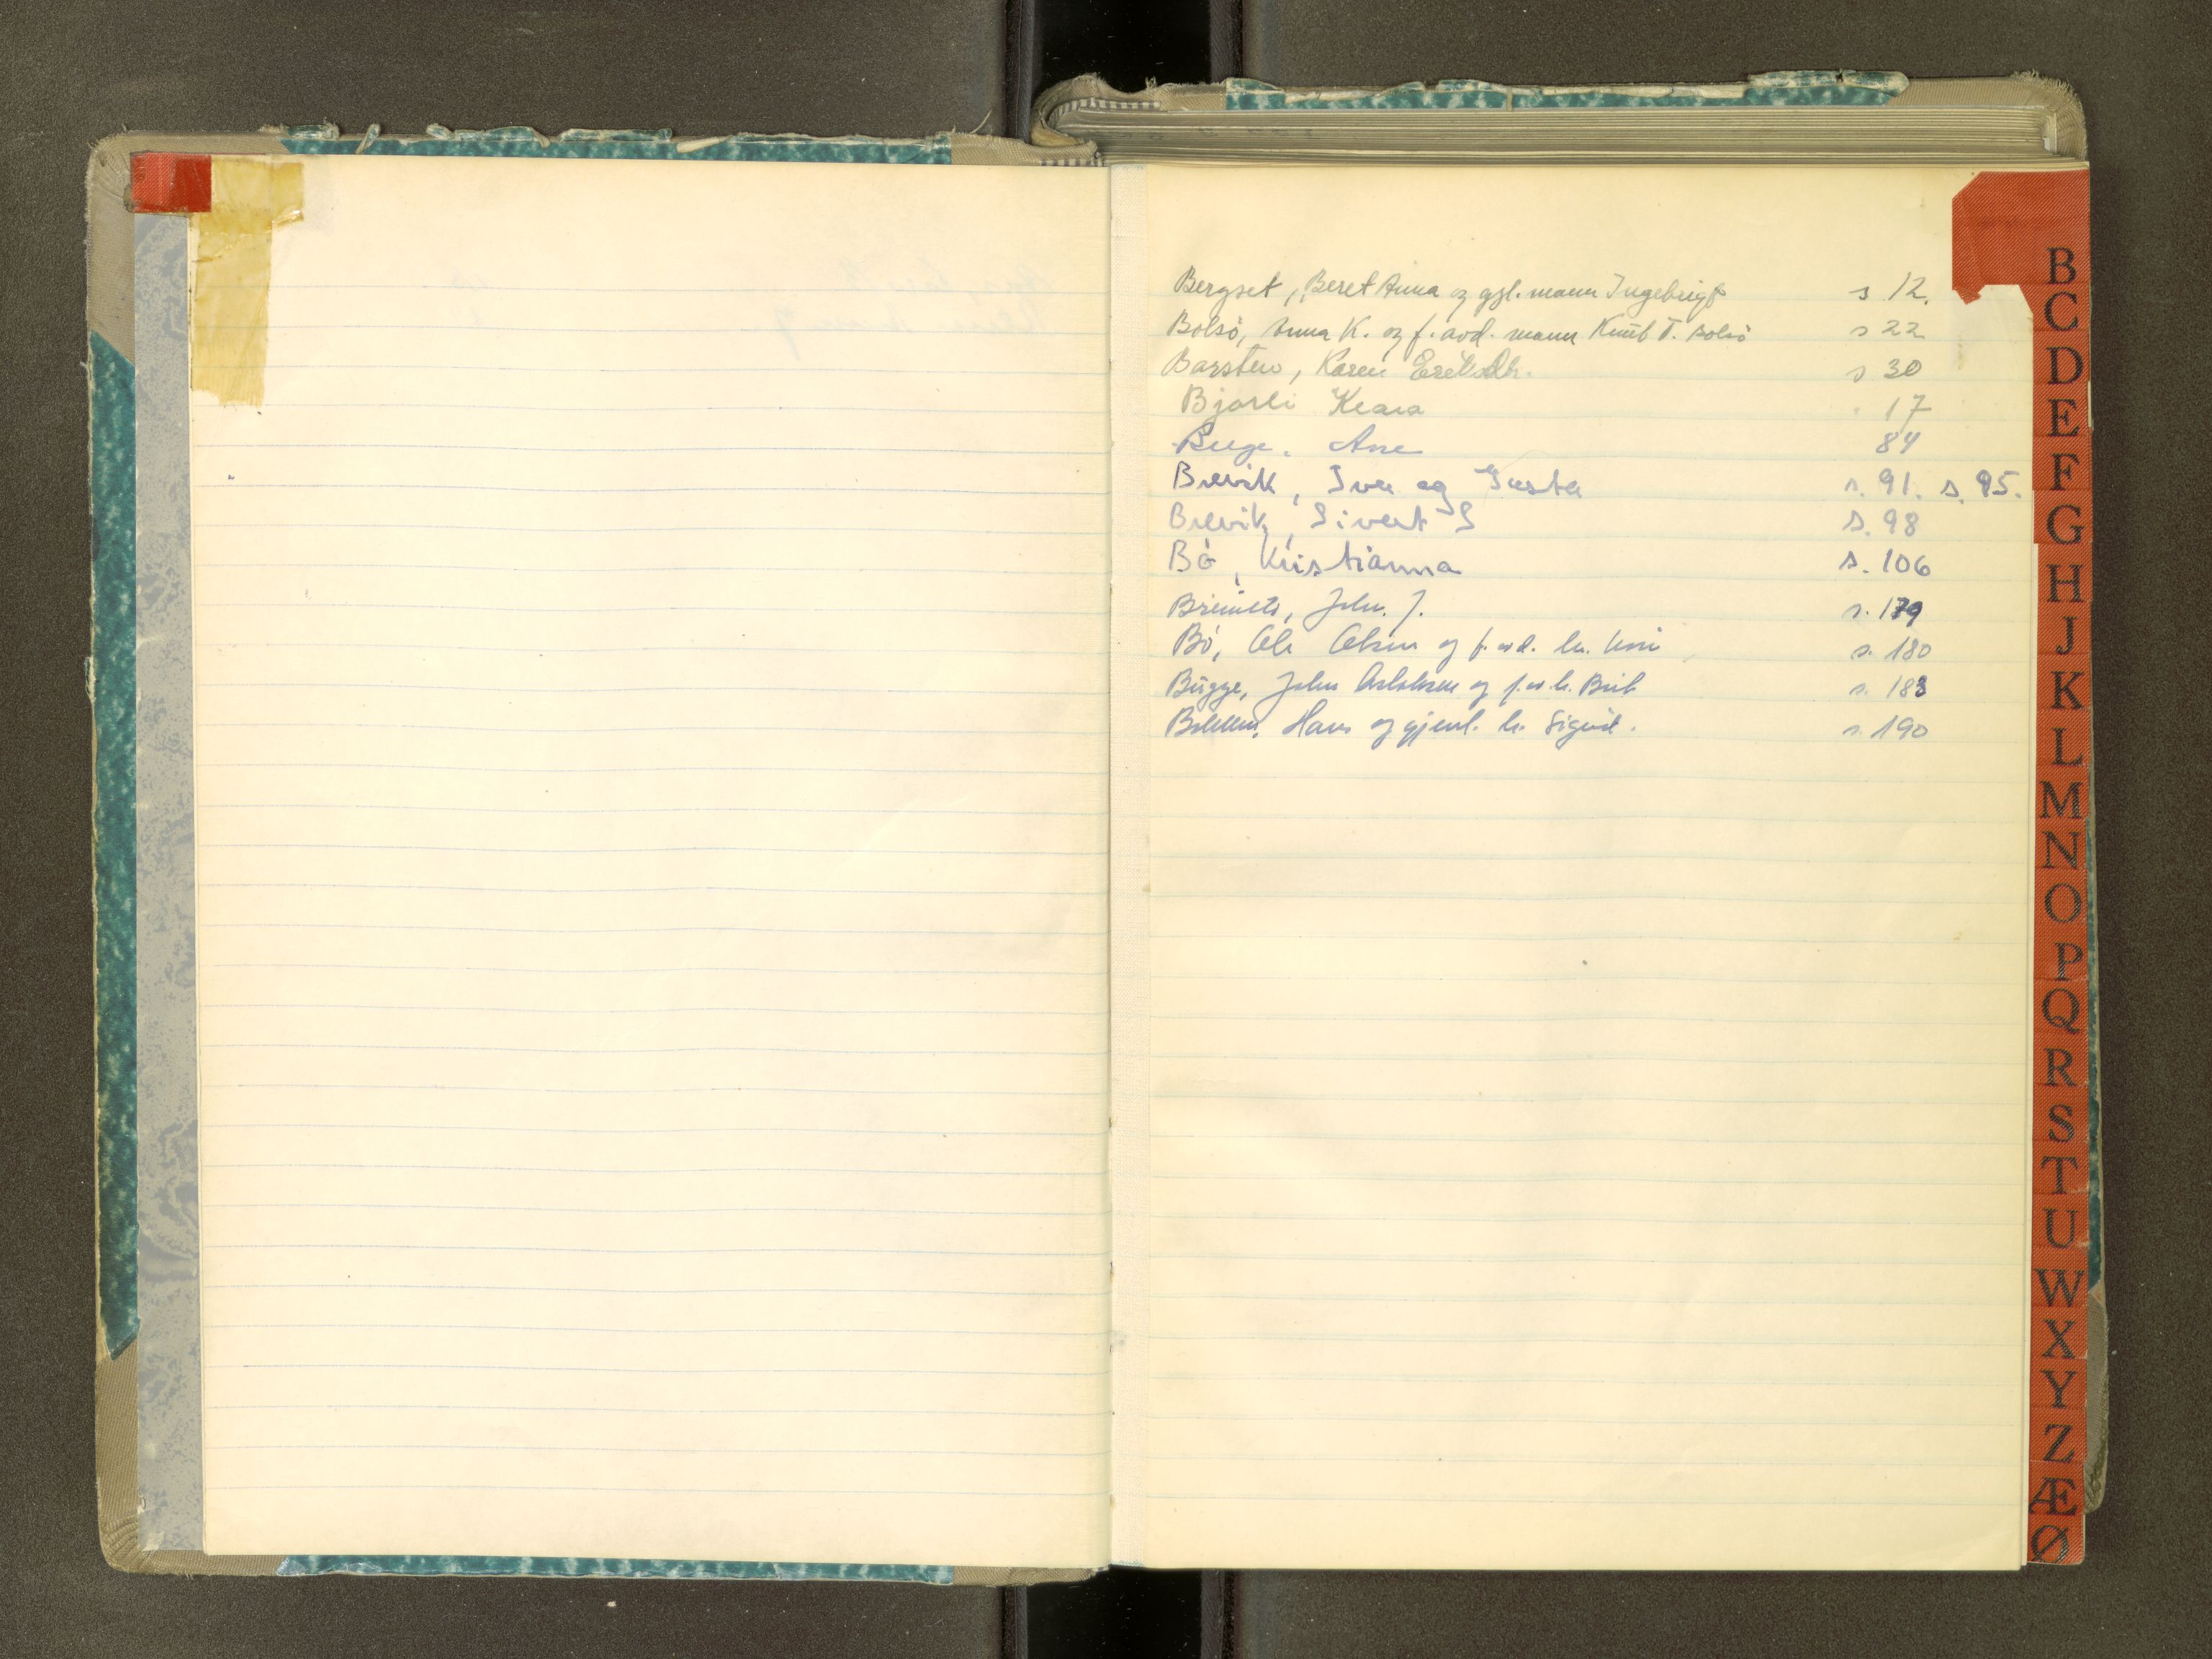 Bergset, Beret Anna og gjl. mann Ingebrigt s 12.
Bolsö, Anna K. og f. avd. mann Knut T. Bolsö s 22
Barsten, Karen s 30
Bjørli Klara 17
Ane 84
Brevik, Iver og s. 91. s. 95.
Brevik, Sivert S s. 98
Bö, Kristianna s. 106
John. J. s. 179
Bö, Ole Olsen og f. avd. h. s. 180
Bugge, John og f. a. h. Brit s. 183
Hans og gjenl. h. Sigrid. s. 190
B
C
D
E
F
G
H
J
K
L
M
N
O
P
Q
R
S
T
U
W
X
Y
Z
Æ
Ø